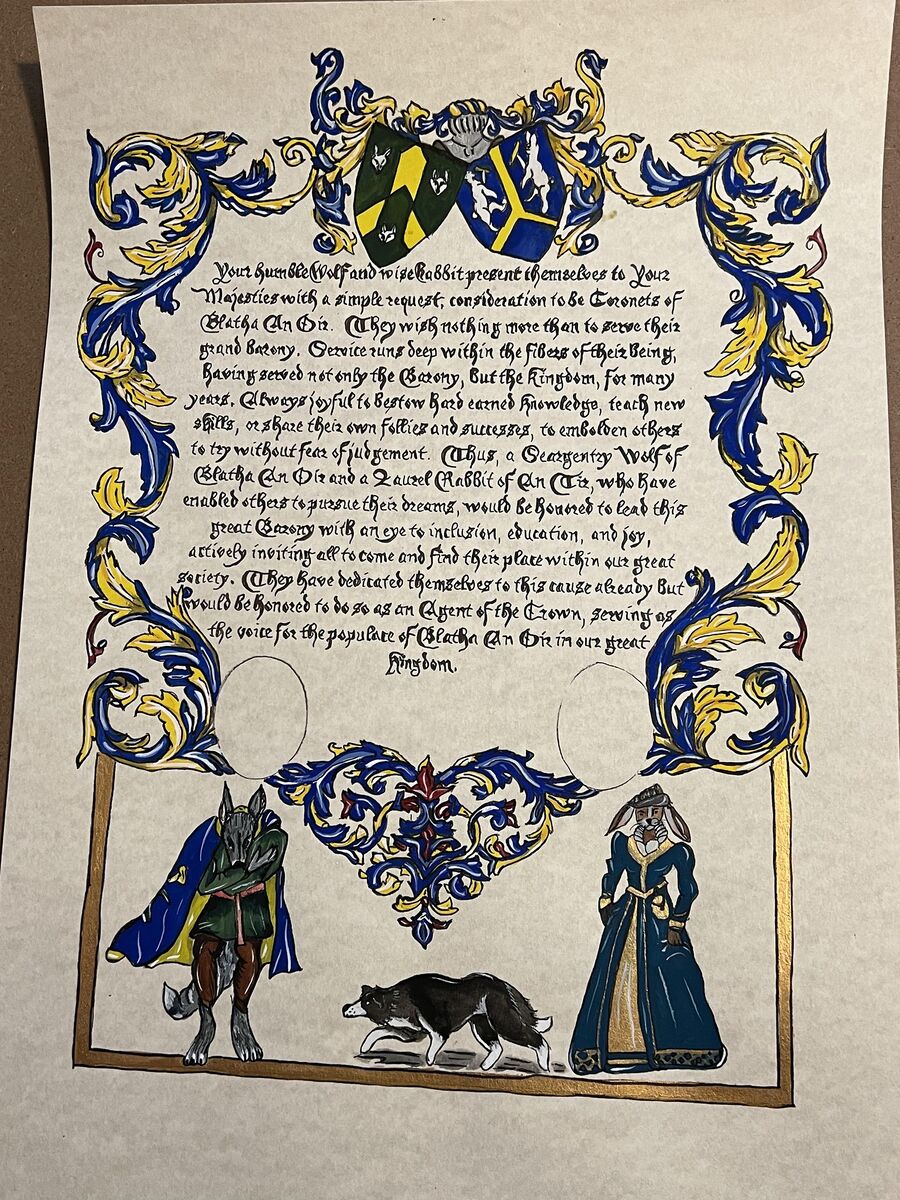 Your humble Wolf and wise Rabbit present themselves to Your
Majesties with a simple request, consideration to be Coronets of
Blatha An Oir. They wish nothing more than to serve their
grand barony. Service runs deep within the fibers of their being,
having served not only the Barony, but the Kingdom, for many
years. Always joyful to bestow hard earned knowledge, teach new
skills, or share their own follies and successes, to embolden others
to try without fear of judgement. Thus, a Seargentry Wolf of
Blatha An Oir and a Laurel Rabbit of An Tir, who have
enabled others to pursue their dreams, would be honored to lead this
great Barony with an eye to inclusion, education, and joy,
actively inviting all to come and find their place within our great
society. They have dedicated themselves to this cause already but
would be honored to do so as an Agent of the Crown, serving as
the voice for the populace of Blatha An Oir in our great
Kingdom.